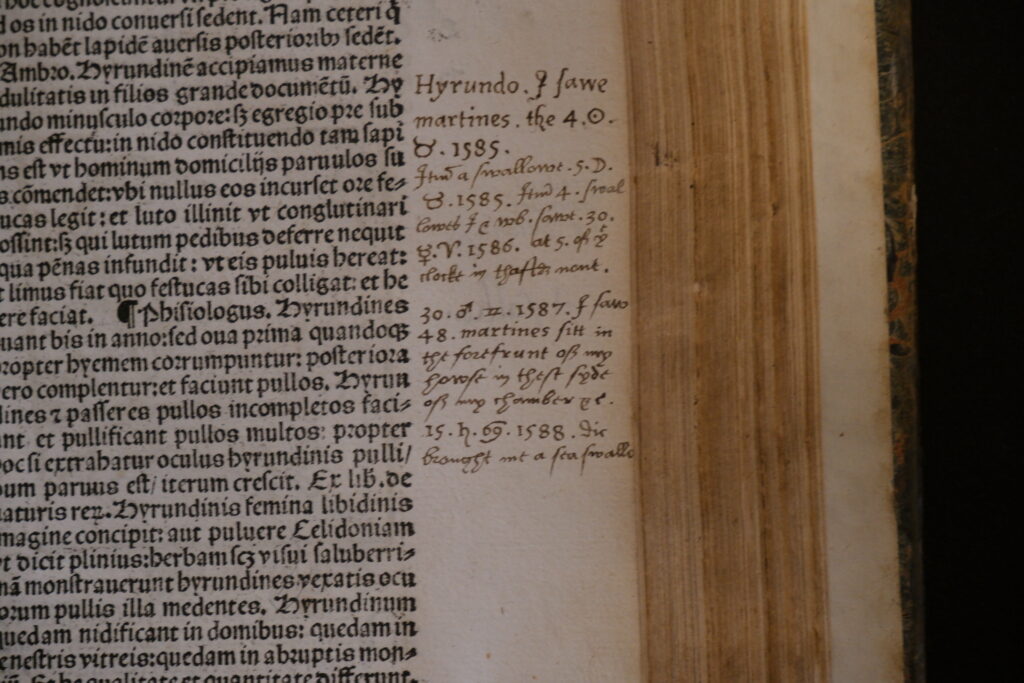 os in nido conuersi sedent. Nam ceteri q̄
on habēt lapidē auersis posteriorib⁹ sedēt.
Ambro. Hyrundinē accipiamus materne
dulitatis in filios grande documētū. Hy
undo minusculo corpore: sꝫ egregio pre sub
mis effectu: in nido constituendo tam sapi
ns est vt hominum domicilijs paruulos su
s cōmendet: vbi nullus eos incurset ore fe⸗
ucas legit: et luto illinit vt conglutinari
ossint: sꝫ qui lutum pedibus deferre nequit
qua pēnas infundit: vt eis puluis hereat:
t limus fiat quo festucas sibi colligat: et he
ere faciat. ¶ Phisiologus. Hyrundines
uant bis in anno: sed oua prima quandoqꝫ
propter hyemem corrumpuntur: posteriora
ero complentur: et faciunt pullos. Hyrun
dines ⁊ passeres pullos incompletos faci⸗
unt et pullificant pullos multos: propter
hoc si extrahatur oculus hyrundinis pulli/
dum paruus est/ iterum crescit. Ex lib. de
naturis reꝝ. Hyrundinis femina libidinis
magine concipit: aut puluere Celidoniam
vt dicit plinius: herbam scꝫ visui saluberri⸗
mā monstrauerunt hyrundines vexatis ocu
orum pullis illa medentes. Hyrundinum
quedam nidificant in domibus: quedam in
fenestris vitreis: quedam in abruptis mon⸗
qualitate et quantitate differunt.
Hyrundo. I sawe
martines. the 4. ☉.
♉. 1585.
Itm̄ a swallowe. 5. D.
♉. 1585. Itm̄ 4. swal
lowes I wb. sawe. 30.
☿. ♈. 1586. at 5. of ye
clocke in thaftr none.
30. ♂. ♊. 1587. I saw
48. martines sitt in
the forefrunt off my
howse in thest syde
off my chamber
15. ♄. ♋. 1588. dic
brought me a sea swallo